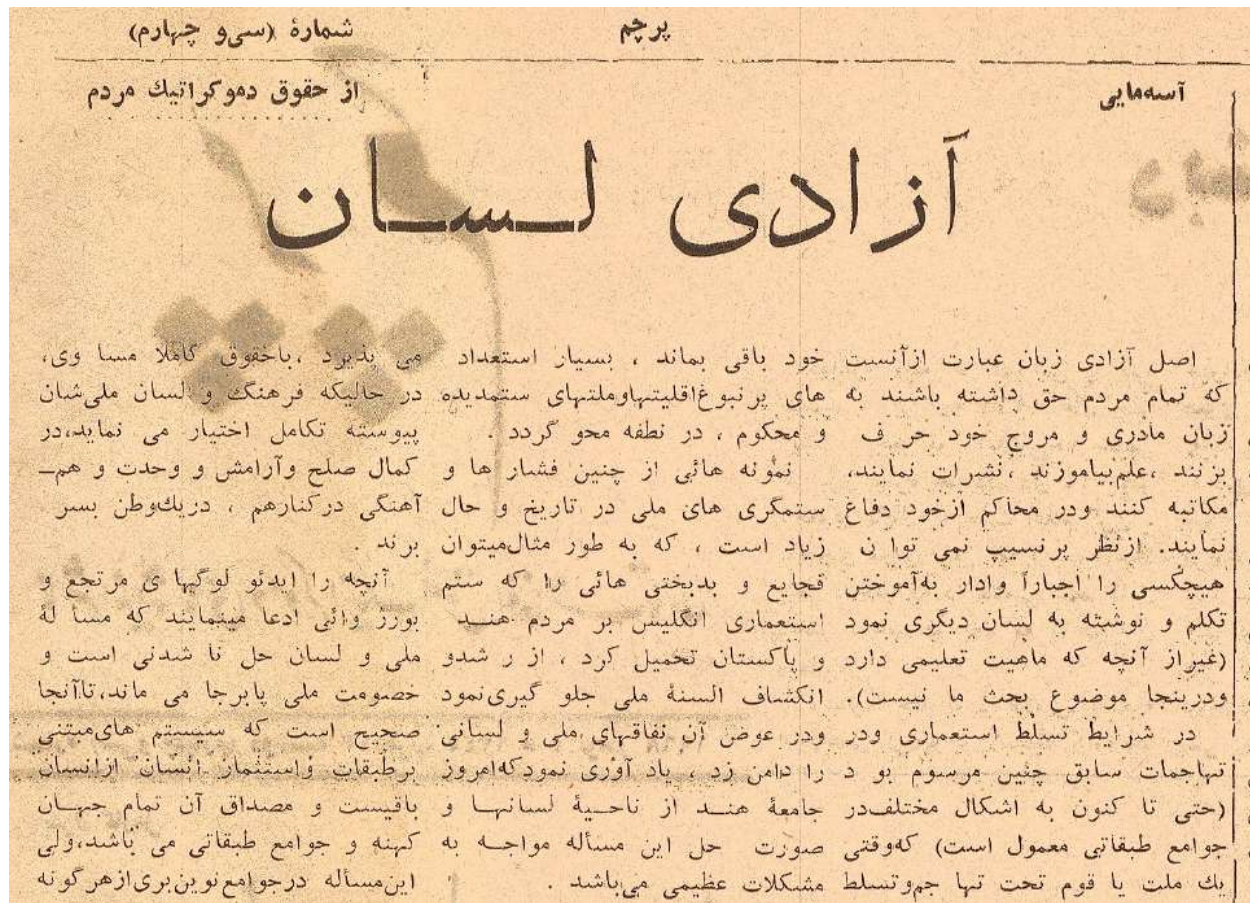 شمارهٔ (سی‌و چهارم)
پرچم
از حقوق دموکراتیک مردم
آسه‌مایی
آزادی لسان
اصل آزادی زبان عبارت ازآنست
که تمام مردم حق داشته باشند به
زبان مادری و مروج خود حر ف
بزنند ،علم‌بیاموزند ،نشرات نمایند،
مکاتبه کنند ودر محاکم ازخود دفاع
نمایند. ازنظر پرنسیپ نمی توا ن
هیچکسی را اجباراً وادار به‌آموختن
تکلم و نوشته به لسان دیگری نمود
(غیراز آنچه که ماهیت تعلیمی دارد
ودرینجا موضوع بحث ما نیست).
در شرایط تسلط استعماری ودر
تهاجمات سابق چنین مرسوم بو د
(حتی تا کنون به اشکال مختلف‌در
جوامع طبقاتی معمول است) که‌وقتی
یك ملت یا قوم تحت تها جم‌وتسلط
خود باقی بماند ، بسیار استعداد
های پرنبوغ‌اقلیتهاوملتهای ستمدیده
و محکوم ، در نطفه محو گردد .
نمونه هائی از چنین فشار ها و
ستمگری های ملی در تاریخ و حال
زیاد است ، که به طور مثال‌میتوان
فجایع و بدبختی هائی را که ستم
استعماری انگلیس بر مردم هنـد
و پاکستان تحمیل کرد ، از ر شدو
انکشاف السنهٔ ملی جلو گیری‌نمود
ودر عوض آن نفاقهای ملی و لسانی
را دامن زد ، یاد آوری نمودکه‌امروز
جامعهٔ هنـد از ناحـیهٔ لسانهـا و
صورت حل این مسأله مواجـه به
مشکلات عظیمی می‌باشد .
می پذیرد ،باحقوق کاملا مسا وی،
در حالیکه فرهنگ و لسان ملی‌شان
پیوسته تکامل اختیار می نماید،در
کمال صلح وآرامش و وحدت و همـ
آهنگی درکنارهم ، دریك‌وطن بسر
برند .
آنچه را ایدئو لوگیها ی مرتجع و
بورژ وائی ادعا مینمایند که مسا لهٔ
ملی و لسان حل نا شدنی است و
خصومت ملی پابرجا می ماند،تاآنجا
صحیح است که سیستم های‌مبتنی
برطبقات واستثمار انسان ازانسان
باقیست و مصداق آن تمام جهـان
کهنه و جوامع طبقاتی می باشد،ولی
این‌مسأله درجوامع‌نوین‌بری‌ازهرگونه